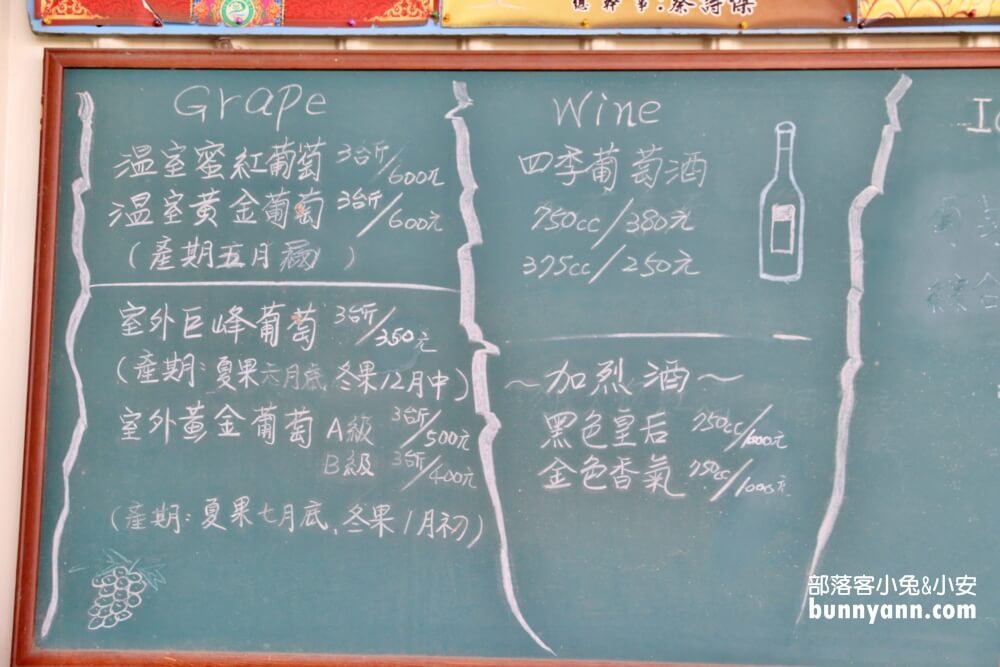 總幹事:蔡詩傑
Grape
溫室蜜紅葡萄 3台斤/600元
溫室黃金葡萄 3台斤/600元
(產期五月 )
室外巨峰葡萄 3台斤/350元
(產期:夏果六月底 冬果12月中)
室外黃金葡萄 A級 3台斤/500元
B級 3台斤/400元
(產期:夏果七月底,冬果1月初)
Wine
四季葡萄酒
750cc/380元
375cc/250元
~加烈酒~
黑色皇后 750cc/1000元
金色香氣 750cc/1000元
部落客小兔&小安
bunnyann.com